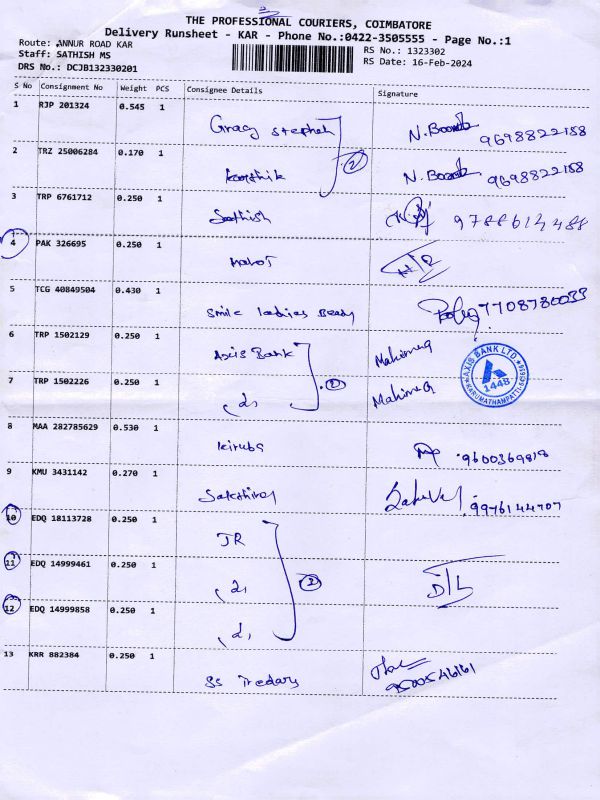 THE PROFESSIONAL COURIERS, COIMBATORE
Delivery Runsheet - KAR - Phone No.:0422-3505555 - Page No.:1
Route: ANNUR ROAD KAR RS No.: 1323302
Staff: SATHISH MS RS Date: 16-Feb-2024
DRS No.: DCJB132330201
S No Consignment No Weight PCS Consignee Details Signature
1 RJP 201324 0.545 1 Gracy Stephen N. 9698822158
2 TRZ 25006284 0.170 1 karthik N. 9698822158
2
3 TRP 6761712 0.250 1 Sathish 9788614488
4 PAK 326695 0.250 1
5 TCG 40849504 0.430 1 Smile ladies Beauty 7708780033
6 TRP 1502129 0.250 1 Axis Bank
AXIS BANK LTD.
1448
7 TRP 1502226 0.250 1
8 MAA 282785629 0.530 1 kiruba 9600369818
9 KMU 3431142 0.270 1 Sakthivel 9976144707
10 EDQ 18113728 0.250 1 JR
11 EDQ 14999461 0.250 1 D/L
12 EDQ 14999858 0.250 1
13 KRR 882384 0.250 1 SS Tredars 9500546161